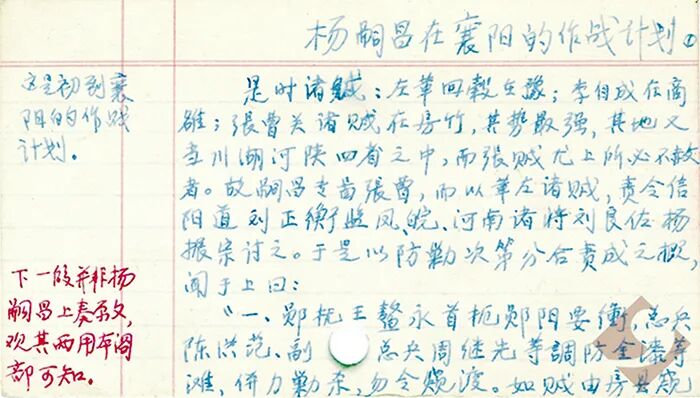 杨嗣昌在襄阳的作战计划①
这是初到襄
阳的作战
计划。
是时诸贼：左革回榖在豫；李自成在商
雒；張曹关诸贼在房竹，其势最强，其地又
当川湖河陕四省之中，而張贼尤上所必不赦
者。故嗣昌专啚張曹，而以革左诸贼，责令信
阳道刘正衡监凤、皖、河南诸将刘良佐杨
振宗讨之。于是以防勦次第分合责成之概，
闻于上曰：
下一段并非杨
嗣昌上奏原文，
观其两用本阁
部可知。
“一、郧抚王鳌永首扼郧阳要衝，总兵
陈洪范、副总兵周继先等調防金漆等
滩，併力勦杀，勿令窥渡。如贼由房县窥